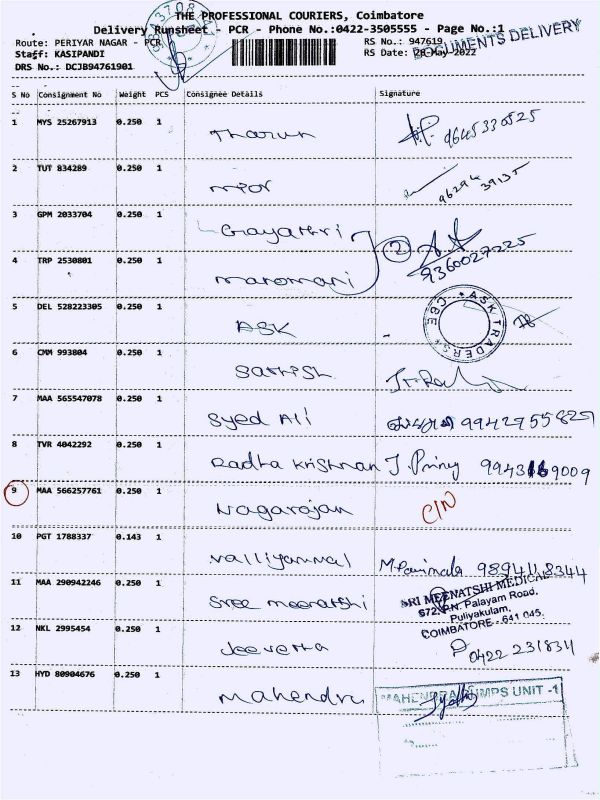 THE PROFESSIONAL COURIERS, Coimbatore
Delivery Runsheet - PCR - Phone No.:0422-3505555 - Page No.:1
Route: PERIYAR NAGAR - PCR
RS No.: 947619
DOCUMENTS DELIVERY
Staff: KASIPANDI
RS Date: 28-May-2022
DRS No.: DCJB94761901
S No Consignment No Weight PCS Consignee Details Signature
1 MYS 25267913 0.250 1 Tharun 9645330525
2 TUT 834289 0.250 1 96294 39135
3 GPM 2033704 0.250 1 Gayathri 2
4 TRP 2530801 0.250 1 manomani 9360027225
5 DEL 528223305 0.250 1 ASK ASK TRADERS CBE
6 CMM 993804 0.250 1 Sathish
7 MAA 565547078 0.250 1 Syed Ali 9942755829
8 TVR 4042292 0.250 1 Radha Krishnan 9009
9 MAA 566257761 0.250 1 Nagarajan C/N
10 PGT 1788337 0.143 1 valliyammal 9894118344
11 MAA 290942246 0.250 1 Sree meenatshi SRI MEENATSHI MEDICAL
672, P.N. Palayam Road,
Puliyakulam,
COIMBATORE - 641 045.
12 NKL 2995454 0.250 1 Jeevetha 0422 231834
13 HYD 80904676 0.250 1 Mahendra MAHENDRA PUMPS UNIT -1